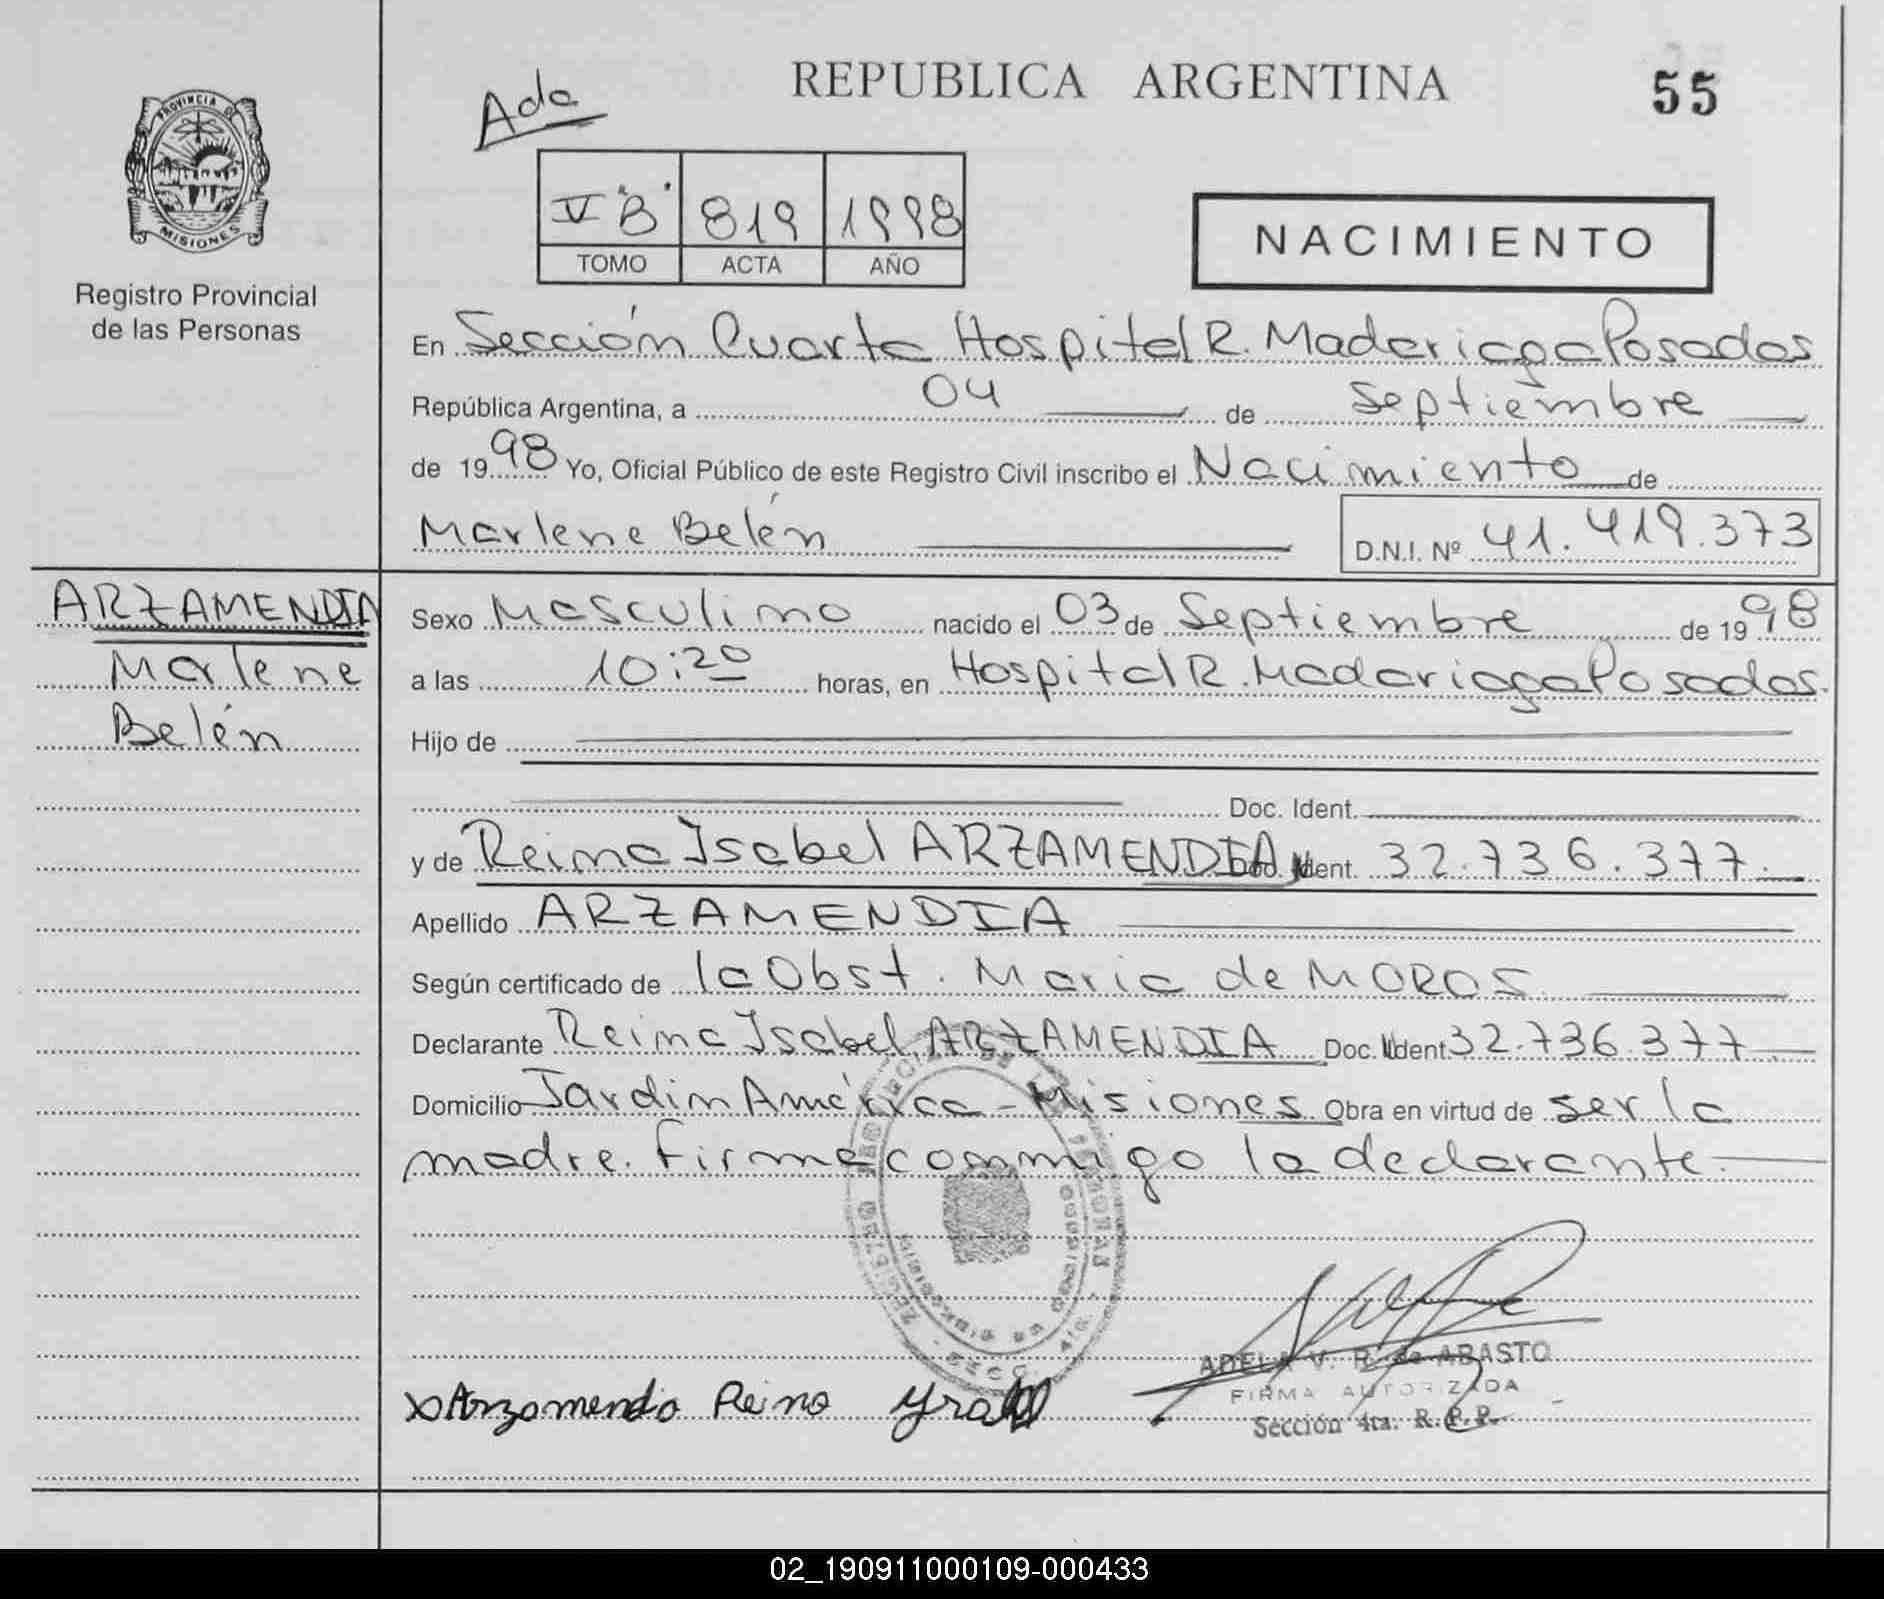 REPUBLICA ARGENTINA
55
Ada
PROVINCIA DE MISIONES
V "B" 819 1998
TOMO ACTA AÑO
NACIMIENTO
Registro Provincial
de las Personas
En Sección Cuarta Hospital R. Madariaga Posadas
República Argentina, a 04 de Septiembre
de 1998 Yo, Oficial Público de este Registro Civil inscribo el Nacimiento de
Marlene Belén D.N.I. Nº 41.419.373
ARZAMENDIA
Marlene
Belén
Sexo Masculino nacido el 03 de Septiembre de 1998
a las 10:20 horas, en Hospital R. Madariaga Posadas.
Hijo de
Doc. Ident.
y de Reina Isabel ARZAMENDIA Doc. Ident. 32.736.377.
Apellido ARZAMENDIA
Según certificado de la Obst. Maria de MOROS
Declarante Reina Isabel ARZAMENDIA Doc. Ident 32.736.377
Domicilio Jardin América - Misiones Obra en virtud de ser la
madre. Firma conmigo la declarante.
ADELA V. R. de ABASTO
FIRMA AUTORIZADA
Sección 4ta. R.P.P.
x Arzamendia Reina
02_190911000109-000433